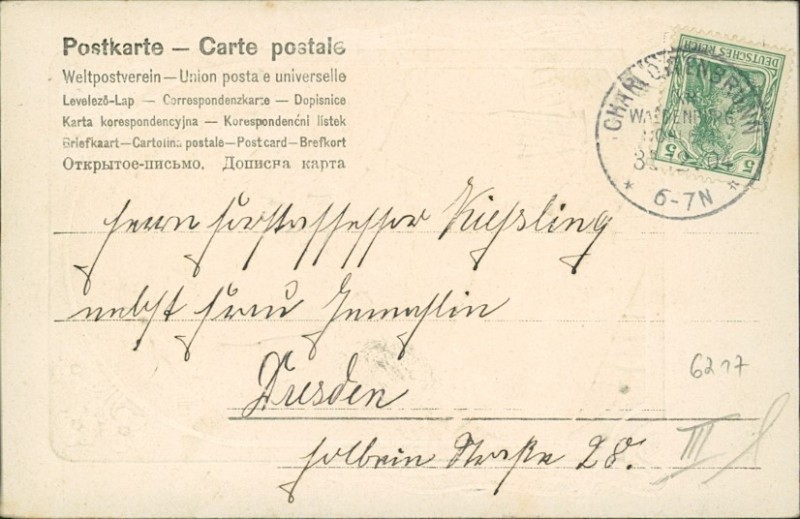 Postkarte — Carte postale
Weltpostverein — Union postale universelle
Levelező-Lap — Correspondenzkarte — Dopisnice
Karta korespondencyjna — Korespondenční lístek
Briefkaart — Cartolina postale — Postcard — Brefkort
Открытое-письмо. Дописна карта
DEUTSCHES REICH
5 5
CHARLOTTENBRUNN
WALDENBURG
04
* 6-7N *
Herrn Forstassessor Kießling
nebst Frau Gemahlin
Dresden
Holbein Straße 28.
6217
III